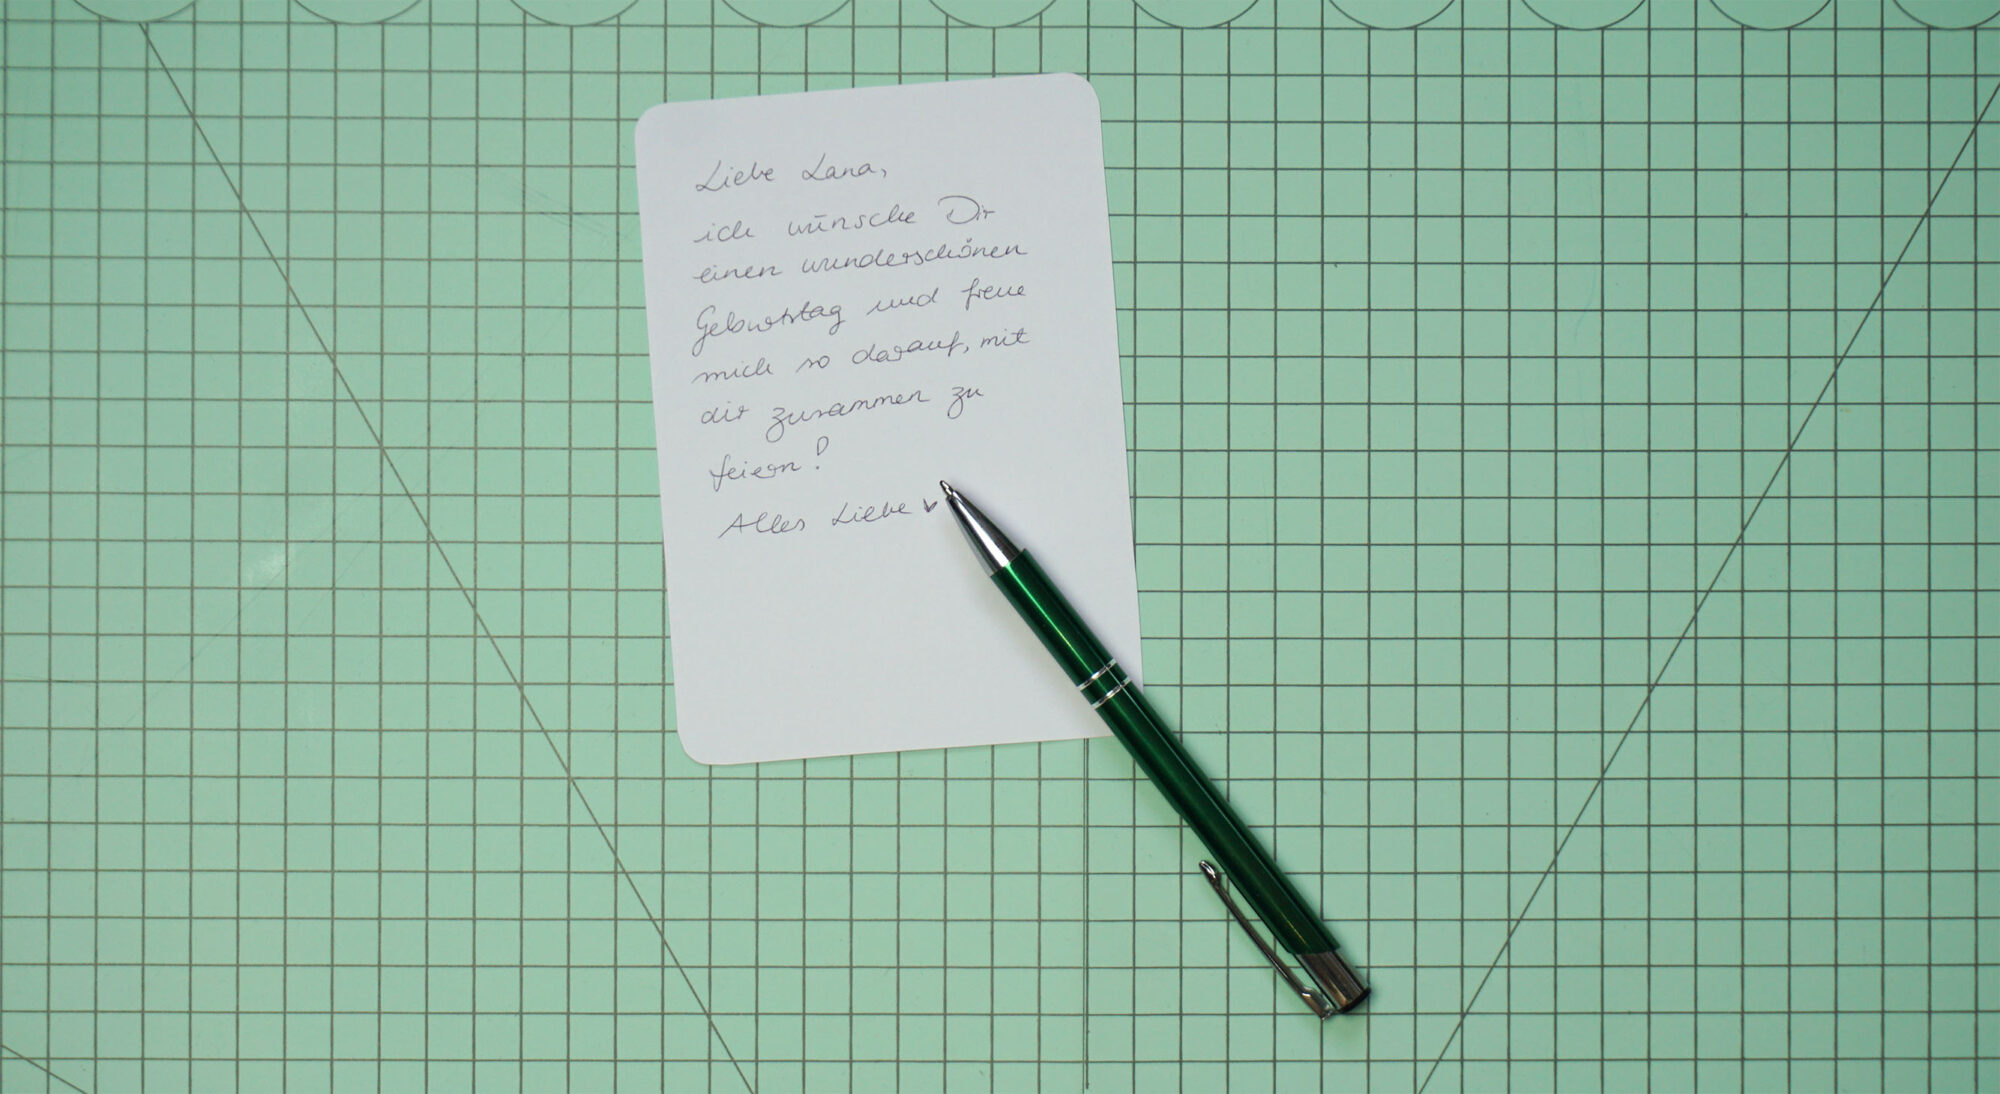 Liebe Lana,
ich wünsche Dir
einen wunderschönen
Geburtstag und freue
mich so darauf, mit
dir zusammen zu
feiern!
Alles Liebe ♥